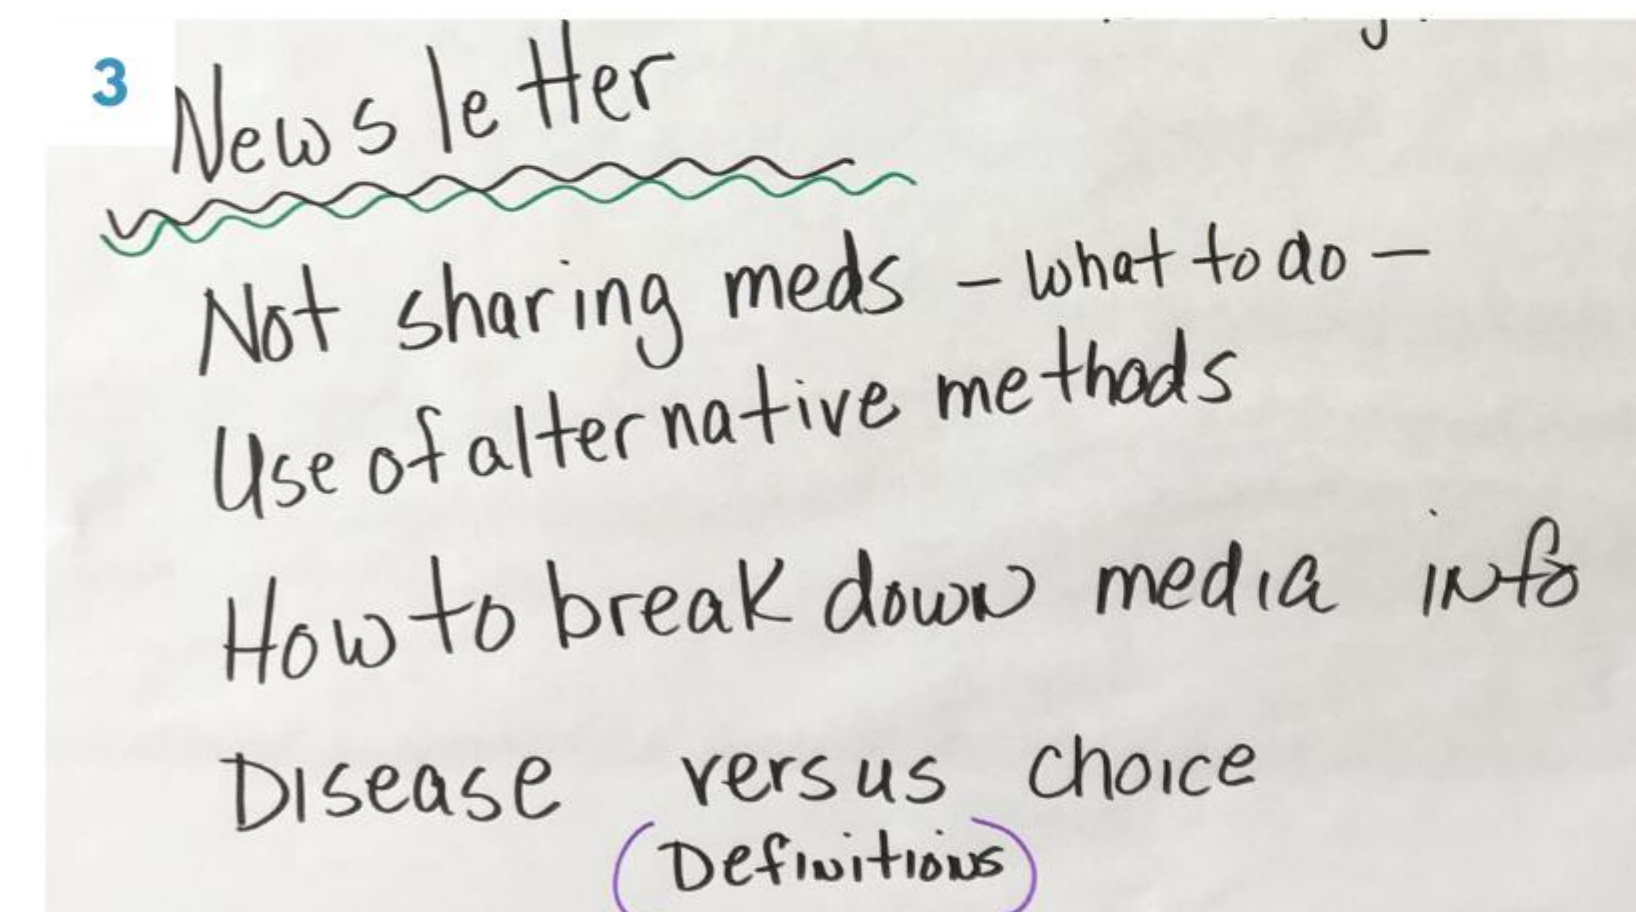 3
Newsletter
Not sharing meds - what to do -
Use of alternative methods
How to break down media info
Disease versus choice
(Definitions)